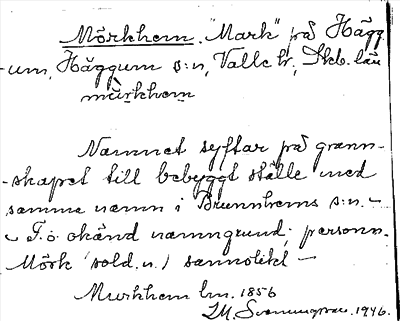 Mörkhem. "Mark" på Hägg-
-um, Häggum s:n, Valle hr, Skb. län
mùrkhem
Namnet syftar på grann-
-skapet till bebyggt ställe med
samma namn i Brunnhems s:n. -
- F.ö. okänd namngrund; personn.
Mörk (sold.n.) sannolikt -
Murkhem lm. 1856
1946.